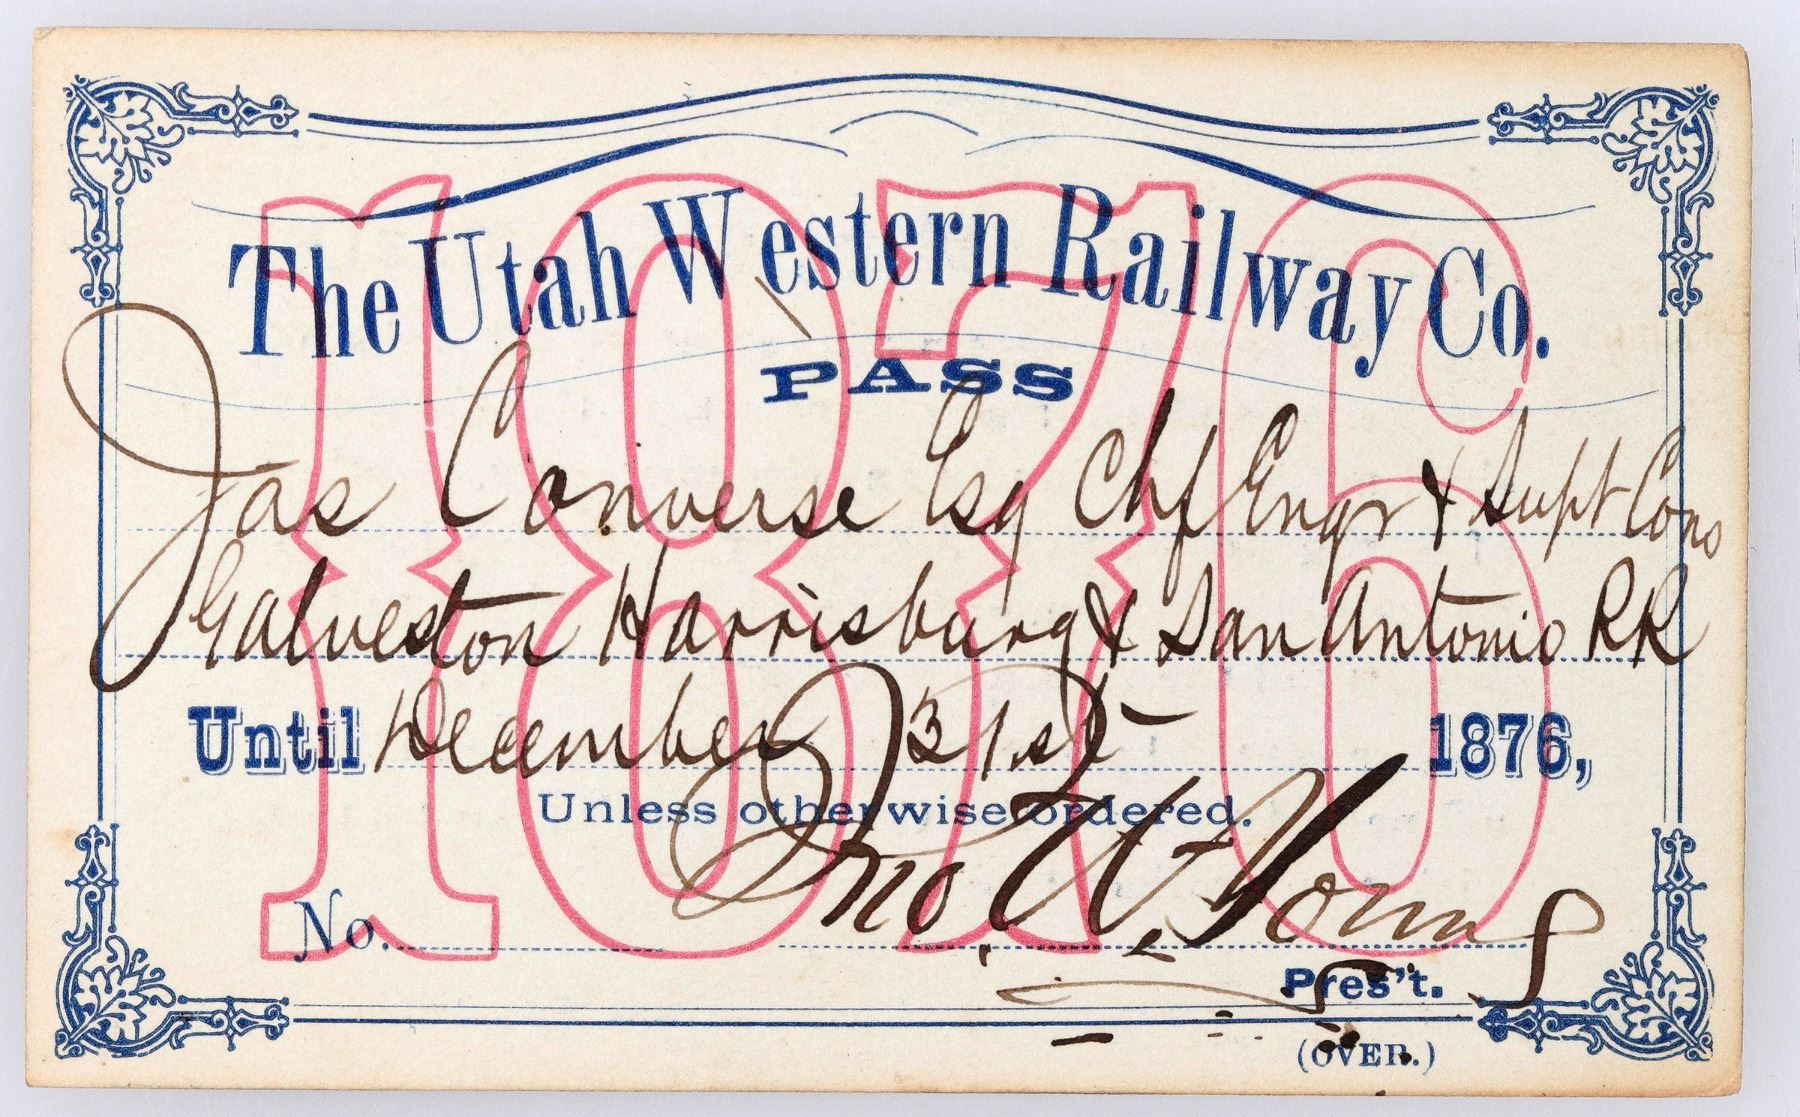 1876
The Utah Western Railway Co.
PASS
Jas Converse Esq Chf Engr & Supt Cons
Galveston Harrisburg & San Antonio RR
Until December 31st 1876,
Unless otherwise ordered.
No. Jno. W. Young
Pres't.
(OVER.)